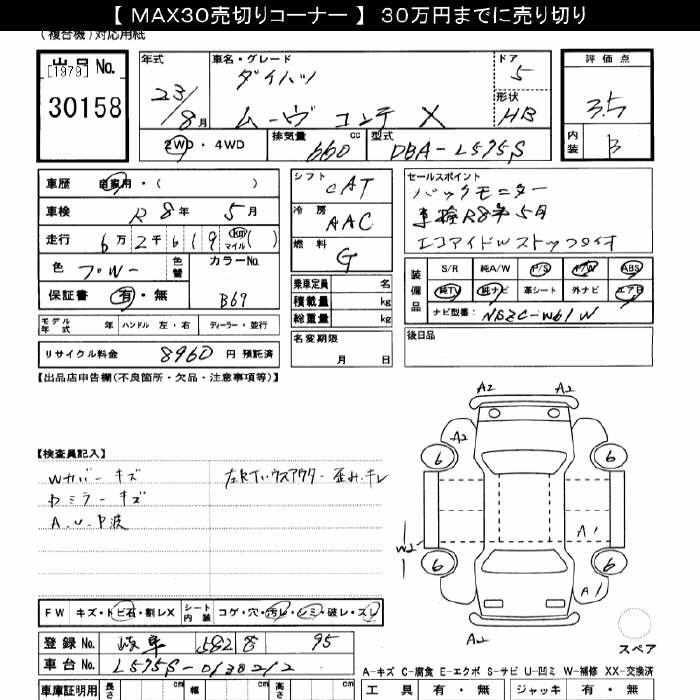 【 MAX30売切りコーナー 】 30万円までに売り切り
(複合機)対応用紙
出品 No.
[1979]
30158
年式
23/8月
車名・グレード
ダイハツ
ムーヴ コンテ X
ドア
5
形状
HB
評価点
3.5
内装
B
2WD・4WD
排気量
660 cc
型式
DBA-L575S
車歴
自家用・( )
車検
R8年 5月
走行
6万2千619 km マイル ( )
色
ブルー
色替
カラーNo.
B69
保証書
有・無
モデル年式 年 ハンドル 左・右 ディーラー・並行
リサイクル料金 8960 円 預託済
シフト
CAT
冷房
AAC
燃料
G
乗車定員 名
積載量 kg
総重量 kg
名変期限
月 日
セールスポイント
バックモニター
車検R8年5月
エコアイドルストップ付
装備品
S/R 純A/W P/S P/W ABS
純TV 純ナビ 革シート 外ナビ エアB
ナビ型番: NSZC-W61W
後日品
【出品店申告欄(不良箇所・欠品・注意事項等)】
【検査員記入】
Wカバーキズ
左R
キレ
ミラーキズ
A.U.P波
A2 A2
A2
6 6
W2
A1
6 6
A1
A2
スペア
FW キズ・トビ石・割レX
シート内装 コゲ・穴・汚レ・シミ・破レ・スレ
登録 No. 岐阜 582 95
車台 No. L575S-0138212
車庫証明用 長さ cm 幅 cm 高さ cm
A-キズ C-腐食 E-エクボ S-サビ U-凹ミ W-補修 XX-交換済
工具 有・無 ジャッキ 有・無